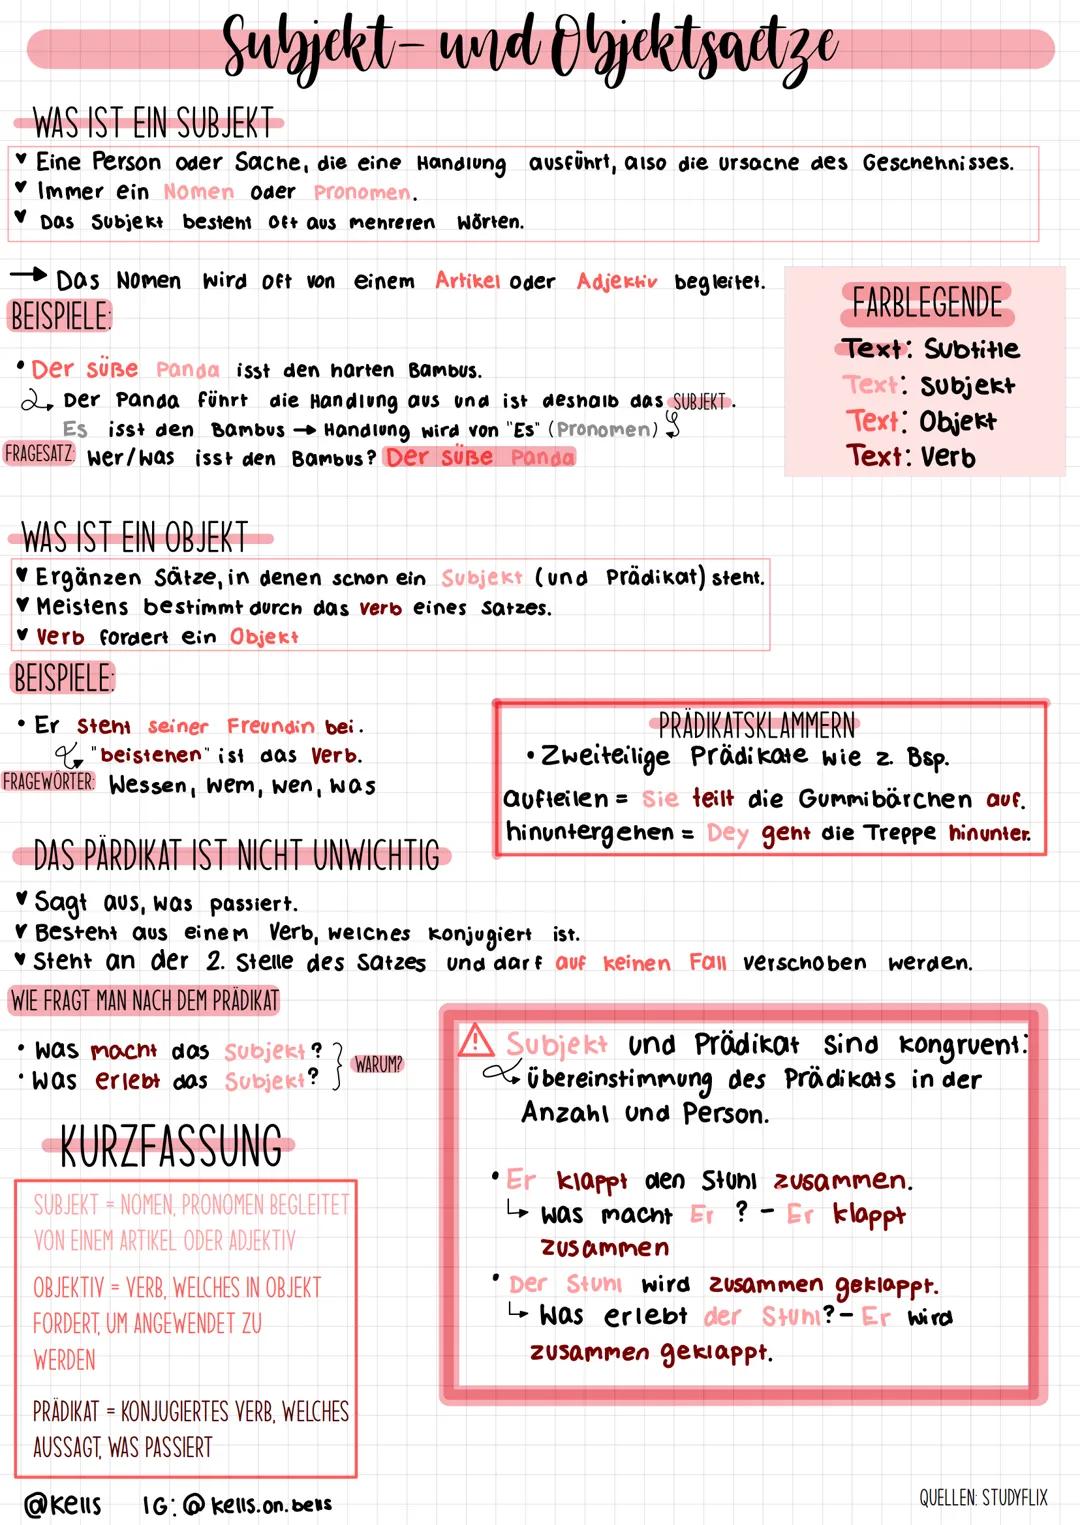 Subjekt- und Objektsaetze
WAS IST EIN SUBJEKT
♥ Eine Person oder Sache, die eine Handlung ausführt, also die ursache des Geschehnisses.
♥ Immer ein Nomen oder Pronomen.
♥ Das Subjekt besteht oft aus mehreren Wörten.
→ Das Nomen wird oft von einem Artikel oder Adjektiv begleitet.
BEISPIELE:
• Der süße Panda isst den harten Bambus.
Der Panda führt die Handlung aus und ist deshalb das SUBJEKT.
Es isst den Bambus → Handlung wird von "Es" (Pronomen)
FRAGESATZ: Wer/Was isst den Bambus? Der süße Panda
FARBLEGENDE
Text: Subtitle
Text: Subjekt
Text: Objekt
Text: Verb
WAS IST EIN OBJEKT
♥ Ergänzen Sätze, in denen schon ein Subjekt (und Prädikat) steht.
♥ Meistens bestimmt durch das Verb eines Satzes.
♥ Verb fordert ein Objekt
BEISPIELE:
• Er steht seiner Freundin bei.
"beistehen" ist das Verb.
FRAGEWÖRTER: Wessen, wem, wen, was
PRÄDIKATSKLAMMERN
• Zweiteilige Prädikate wie z. Bsp.
aufteilen = Sie teilt die Gummibärchen auf.
hinuntergehen = Dey geht die Treppe hinunter.
DAS PÄRDIKAT IST NICHT UNWICHTIG
♥ Sagt aus, was passiert.
♥ Besteht aus einem Verb, welches konjugiert ist.
♥ Steht an der 2. Stelle des Satzes und darf auf keinen Fall verschoben werden.
WIE FRAGT MAN NACH DEM PRÄDIKAT
• Was macht das Subjekt?
• Was erlebt das Subjekt?
WARUM?
⚠ Subjekt und Prädikat sind kongruent:
übereinstimmung des Prädikats in der
Anzahl und Person.
• Er klappt den Stuhl zusammen.
↳ Was macht Er ? – Er klappt
zusammen
• Der Stuhl wird zusammen geklappt.
↳ Was erlebt der Stuhl? – Er wird
zusammen geklappt.
KURZFASSUNG
SUBJEKT = NOMEN, PRONOMEN BEGLEITET
VON EINEM ARTIKEL ODER ADJEKTIV
OBJEKTIV = VERB, WELCHES IN OBJEKT
FORDERT, UM ANGEWENDET ZU
WERDEN
PRÄDIKAT = KONJUGIERTES VERB, WELCHES
AUSSAGT, WAS PASSIERT
@kells IG: @kells.on.bells
QUELLEN: STUDYFLIX